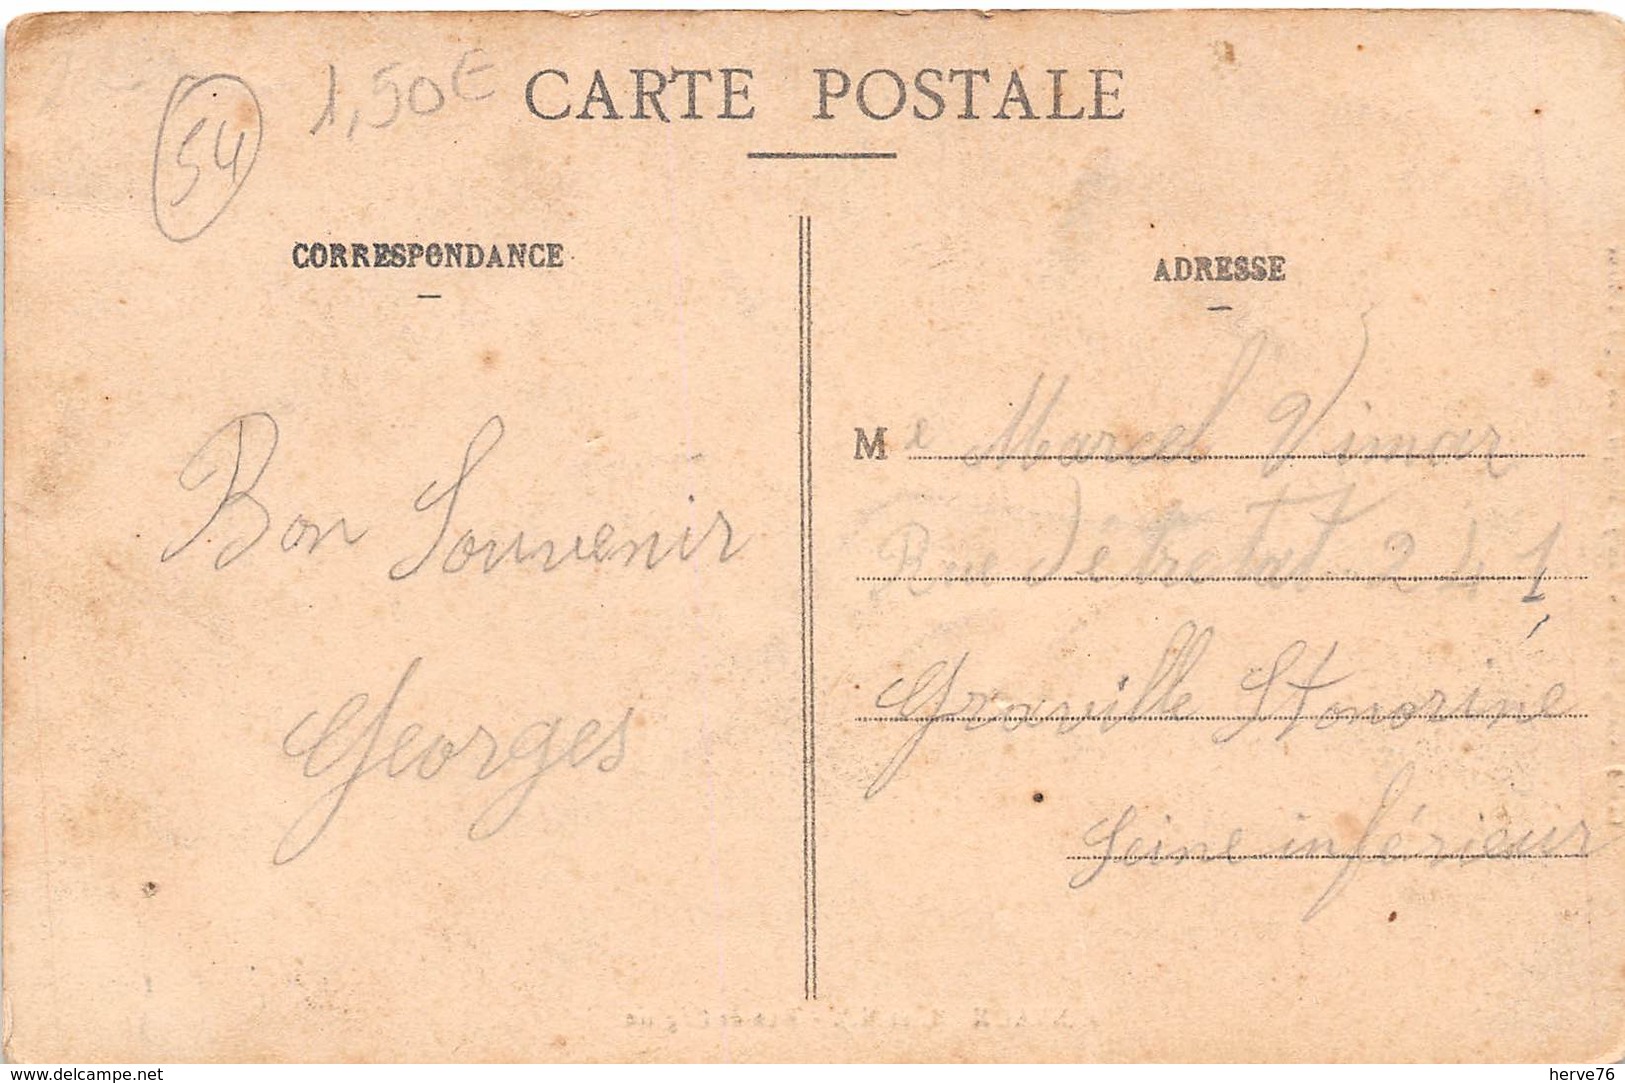 54
1,50€
CARTE POSTALE
CORRESPONDANCE
ADRESSE
Bon Souvenir
Georges
Me Marcel Vimar
Rue d'étretat 241
Graville St honorine
Seine inférieur
www.delcampe.net
herve76